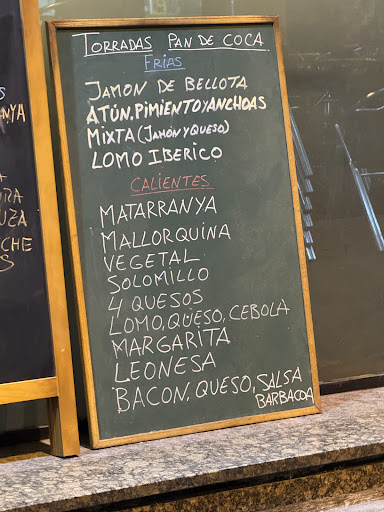 TORRADAS PAN DE COCA
FRÍAS
JAMON DE BELLOTA
ATÚN, PIMIENTO Y ANCHOAS
MIXTA (JAMÓN Y QUESO)
LOMO IBERICO
CALIENTES
MATARRANYA
MALLORQUINA
VEGETAL
SOLOMILLO
4 QUESOS
LOMO, QUESO, CEBOLA
MARGARITA
LEONESA
BACON, QUESO, SALSA
BARBACOA